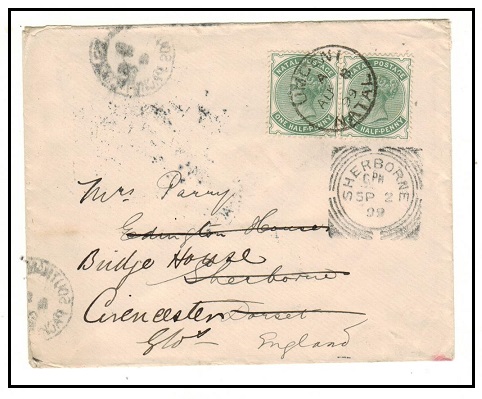 NATAL POSTAGE
ONE HALF-PENNY
NATAL POSTAGE
HALF-PENNY
NATAL
99
SHERBORNE
6PM
SP 2
99
Mrs Parry
Edington House
Bridge House
Sherborne
Cirencester Dorset
Glos England